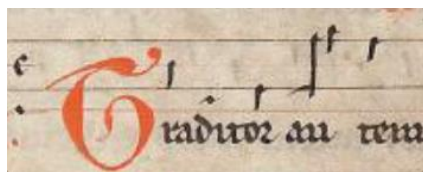 Traditor au tem